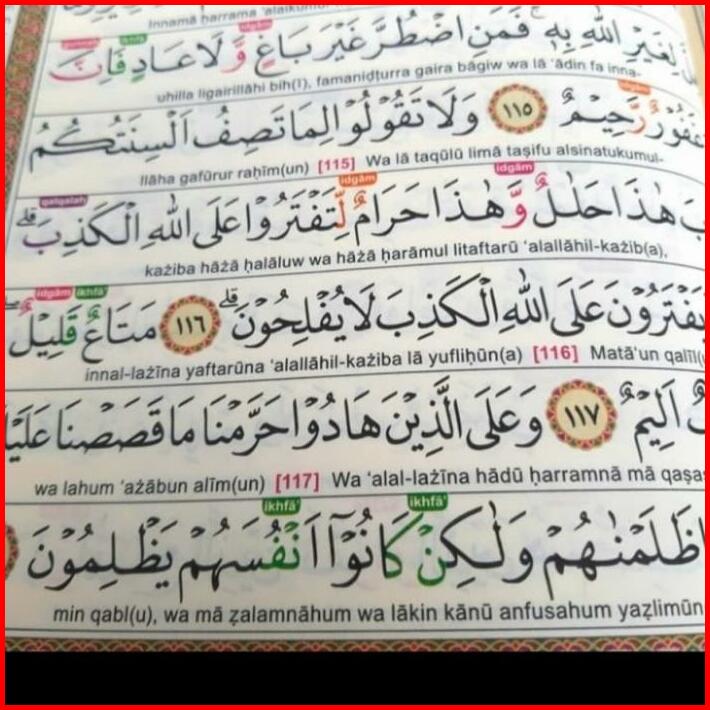 Innamā ḥarrama 'alaikumu
لِغَيْرِ اللّٰهِ بِهٖۚ فَمَنِ اضْطُرَّ غَيْرَ بَاغٍ وَّلَا عَادٍ فَاِنَّ
idgām ikhfā'
uhilla ligairillāhi bih(ī), famaniḍṭurra gaira bāgiw wa lā 'ādin fa inna-
غَفُوْرٌ رَّحِيْمٌ ۝١١٥ وَلَا تَقُوْلُوْا لِمَا تَصِفُ اَلْسِنَتُكُمُ
idgām
llāha gafūrur raḥīm(un) [115] Wa lā taqūlū limā taṣifu alsinatukumul-
هٰذَا حَلٰلٌ وَّهٰذَا حَرَامٌ لِّتَفْتَرُوْا عَلَى اللّٰهِ الْكَذِبَۗ
idgām idgām qalqalah
każiba hāżā ḥalāluw wa hāżā ḥarāmul litaftarū 'alallāhil-każib(a),
يَفْتَرُوْنَ عَلَى اللّٰهِ الْكَذِبَ لَا يُفْلِحُوْنَۗ ۝١١٦ مَتَاعٌ قَلِيْلٌ
ikhfā' idgām
innal-lażīna yaftarūna 'alallāhil-każiba lā yufliḥūn(a) [116] Matā'un qalīl(u
اَلِيْمٌ ۝١١٧ وَعَلَى الَّذِيْنَ هَادُوْا حَرَّمْنَا مَا قَصَصْنَا
wa lahum 'ażābun alīm(un) [117] Wa 'alal-lażīna hādū ḥarramnā mā qaṣaṣ
ظَلَمْنٰهُمْ وَلٰكِنْ كَانُوْٓا اَنْفُسَهُمْ يَظْلِمُوْنَ
ikhfā' ikhfā'
min qabl(u), wa mā ẓalamnāhum wa lākin kānū anfusahum yaẓlimūn